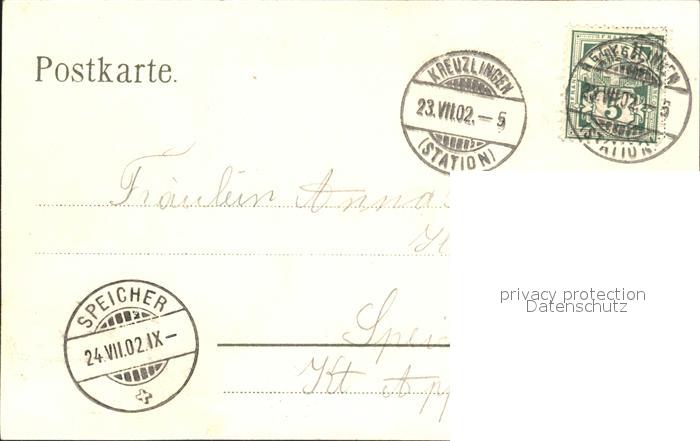 Postkarte.
KREUZLINGEN
23.VII.02.–5
(STATION)
KREUZLINGEN
23.VII.02.–5
(STATION)
5
Fräulein Anna
privacy protection
Datenschutz
SPEICHER
24.VII.02.IX–
Spei
Kt App